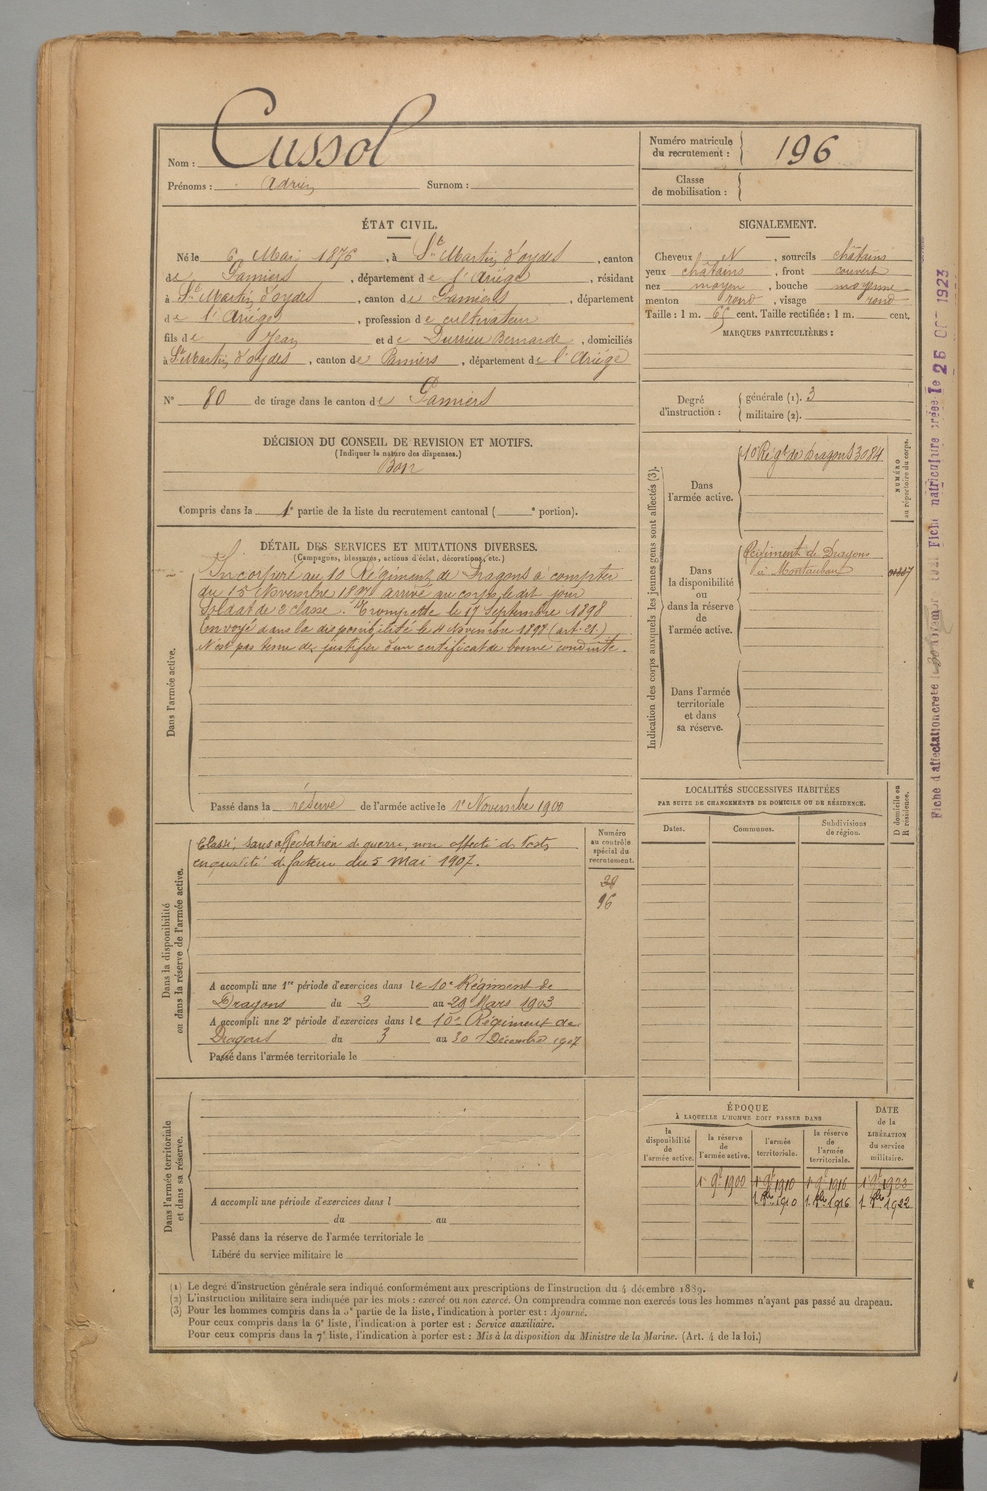 Nom : Cussol
Prénoms : Adrien Surnom :
Numéro matricule du recrutement : 196
Classe de mobilisation :
ÉTAT CIVIL.
Né le 6 Mai 1876, à St Martin d'oydes, canton
de Pamiers, département de l'Ariège, résidant
à St Martin d'oydes, canton de Pamiers, département
de l'Ariège, profession de cultivateur
fils de Jean et de Durrieu Bernarde, domiciliés
à St Martin d'oydes, canton de Pamiers, département de l'Ariège
N° 80 de tirage dans le canton de Pamiers
SIGNALEMENT.
Cheveux N, sourcils châtains
yeux châtains, front couvert
nez moyen, bouche moyenne
menton rond, visage rond
Taille : 1 m. 65 cent. Taille rectifiée : 1 m. cent.
MARQUES PARTICULIÈRES :
Degré d'instruction : générale (1). 3
militaire (2).
DÉCISION DU CONSEIL DE REVISION ET MOTIFS.
(Indiquer la nature des dispenses.)
Bon
Compris dans la 1e partie de la liste du recrutement cantonal ( e portion).
DÉTAIL DES SERVICES ET MUTATIONS DIVERSES.
(Campagnes, blessures, actions d'éclat, décorations, etc.)
Dans l'armée active.
Incorporé au 10 Régiment de Dragons à compter
du 15 Novembre 1897 arrivé au corps le dit jour
Soldat de 2e classe. Trompette le 17 Septembre 1898
Envoyé dans la disponibilité le 4 Novembre 1898 (art. 21.)
N'est pas tenu de justifier d'un certificat de bonne conduite.
Passé dans la réserve de l'armée active le 1er Novembre 1900
Indication des corps auxquels les jeunes gens sont affectés (3).
NUMÉRO au répertoire du corps.
Dans l'armée active.
10 Régt de Dragons 3084
Dans la disponibilité ou dans la réserve de l'armée active.
Régiment de Dragons
à Montauban
Dans l'armée territoriale et dans sa réserve.
Dans la disponibilité ou dans la réserve de l'armée active.
Classé, sans affectation de guerre, non affecté des Postes
en qualité de facteur du 5 Mai 1907.
Numéro au contrôle spécial du recrutement.
96
A accompli une 1re période d'exercices dans le 10e Régiment de
Dragons du 2 au 29 Mars 1903
A accompli une 2e période d'exercices dans le 10e Régiment de
Dragons du 3 au 30 Décembre 1907
Passé dans l'armée territoriale le
LOCALITÉS SUCCESSIVES HABITÉES
PAR SUITE DE CHANGEMENTS DE DOMICILE OU DE RÉSIDENCE.
D domicile ou R résidence.
Dates. Communes. Subdivisions de région.
Dans l'armée territoriale et dans sa réserve.
A accompli une période d'exercices dans l
du au
Passé dans la réserve de l'armée territoriale le
Libéré du service militaire le
ÉPOQUE
À LAQUELLE L'HOMME DOIT PASSER DANS
DATE de la LIBÉRATION du service militaire.
la disponibilité de l'armée active. la réserve de l'armée active. l'armée territoriale. la réserve de l'armée territoriale.
1er 9bre 1900 1er 9bre 1910 1er 9bre 1916
1. 8bre 1910 1. 8bre 1916 1. 8bre 1922
(1) Le degré d'instruction générale sera indiqué conformément aux prescriptions de l'instruction du 4 décembre 1889.
(2) L'instruction militaire sera indiquée par les mots : exercé ou non exercé. On comprendra comme non exercés tous les hommes n'ayant pas passé au drapeau.
(3) Pour les hommes compris dans la 5e partie de la liste, l'indication à porter est : Ajourné.
Pour ceux compris dans la 6e liste, l'indication à porter est : Service auxiliaire.
Pour ceux compris dans la 7e liste, l'indication à porter est : Mis à la disposition du Ministre de la Marine. (Art. 4 de la loi.)
Fiche matriculaire créée le 26 OCT 1923